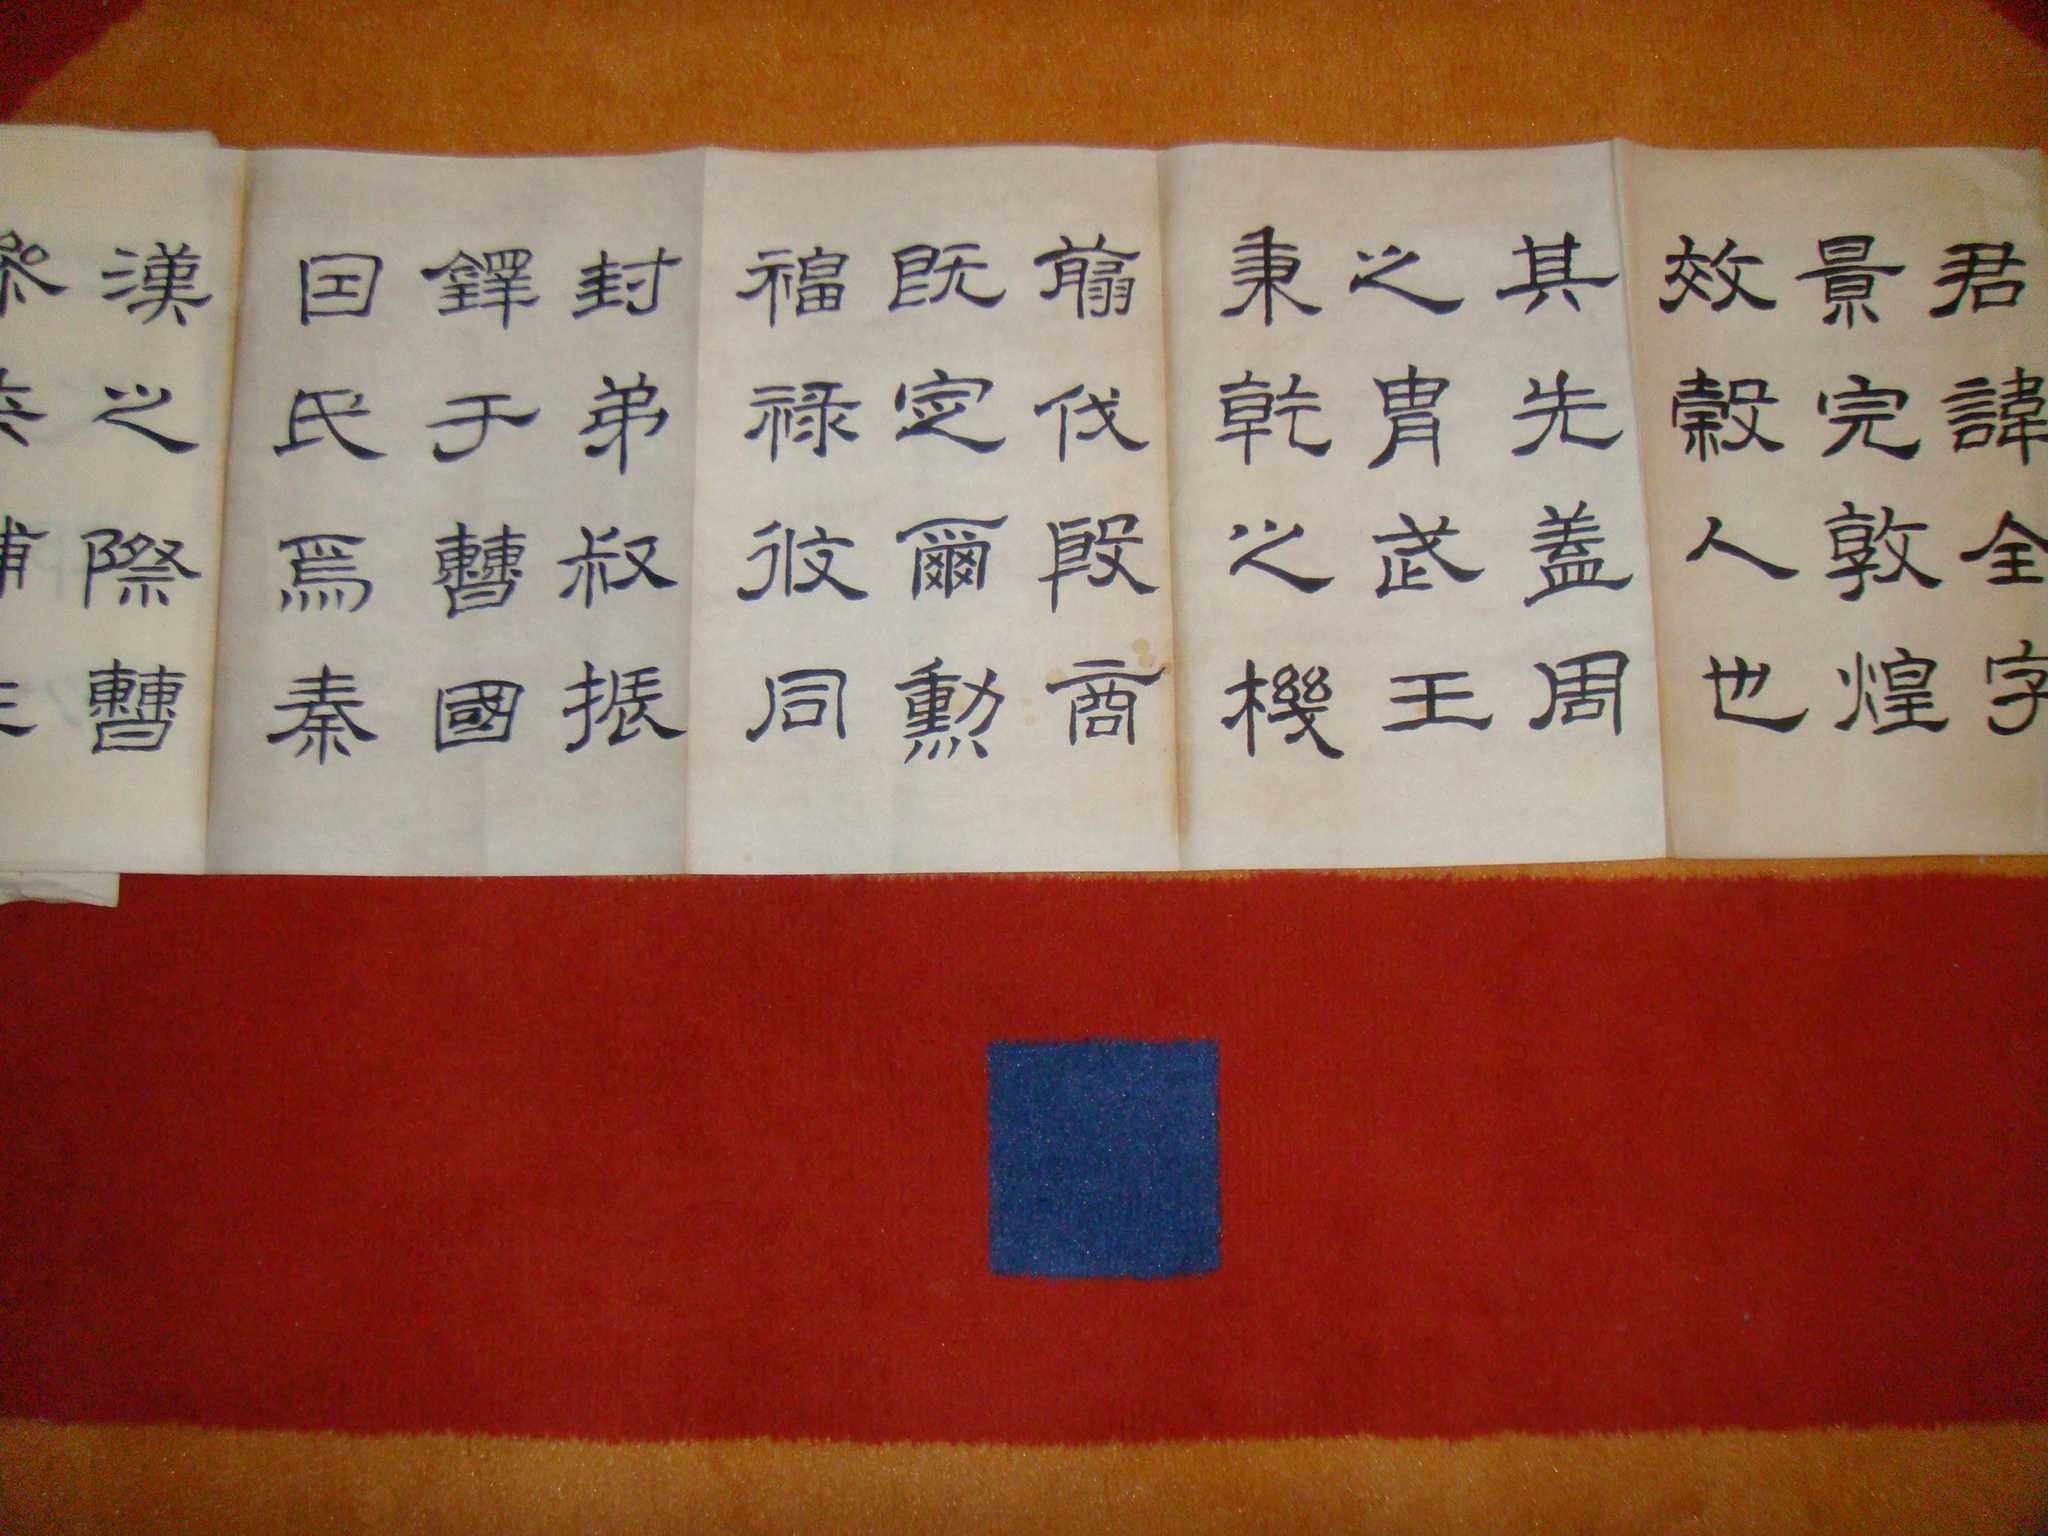 君諱全字
景完敦煌
效穀人也
其先蓋周
之胄武王
秉乾之機
翦伐殷商
既定爾勳
福祿攸同
封弟叔振
鐸于曹國
因氏焉秦
漢之際曹